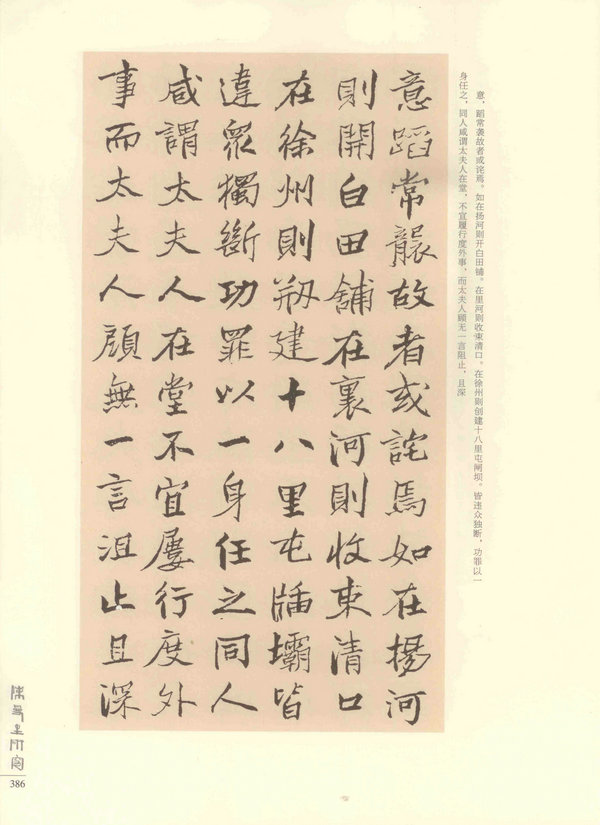 意，蹈常袭故者或诧焉。如在扬河则开白田铺。在里河则收束清口。在徐州则创建十八里屯闸坝。皆违众独断，功罪以一
身任之，同人咸谓太夫人在堂，不宜履行度外事，而太夫人顾无一言阻止，且深
意蹈常襲故者或詫焉如在揚河
則開白田舖在裏河則收束清口
在徐州則剏建十八里屯牐壩皆
違眾獨斷功罪以一身任之同人
咸謂太夫人在堂不宜屢行度外
事而太夫人顧無一言沮止且深
386